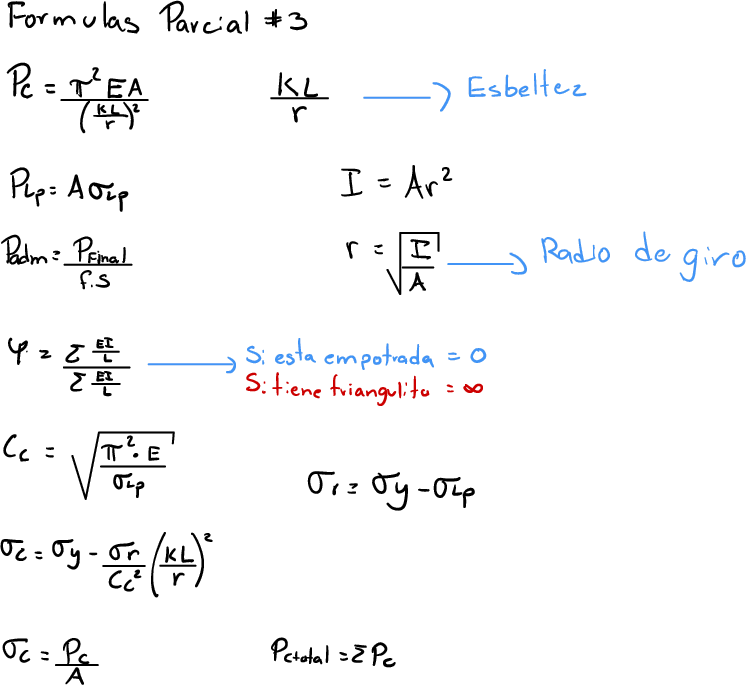 Formulas Parcial #3
Pc = π² E A / (KL/r)²    KL/r → Esbeltez
PLp = A σLp    I = Ar²
Padm = PFinal / f.s    r = √(I/A) → Radio de giro
φ = Σ EI/L / Σ EI/L → Si esta empotrada = 0
Si tiene triangulito = ∞
Cc = √(π² · E / σLp)    σr = σy - σLp
σc = σy - σr/Cc² (KL/r)²
σc = Pc/A    Pctotal = Σ Pc